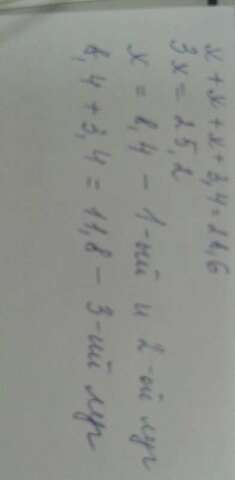 x + x + x + 3,4 = 28,6
3x = 25,2
x = 8,4 – 1-ый и 2-ой луг
8,4 + 3,4 = 11,8 – 3-ий луг